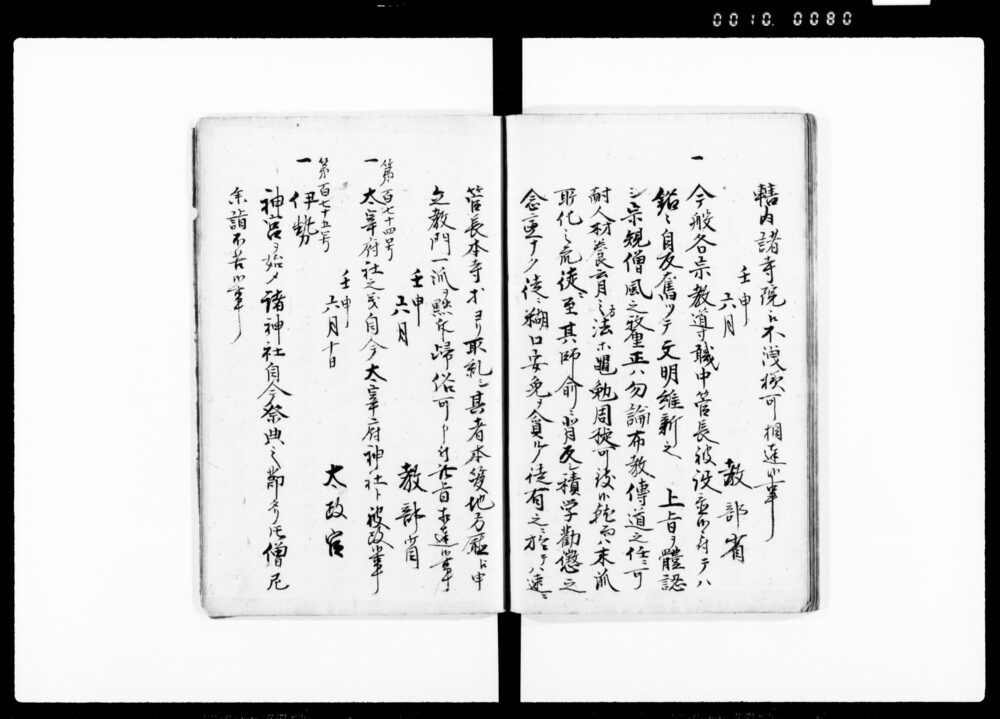 0010 0080
轄内諸寺院ニ不洩様可相達候事
壬申
六月
教部省
一
今般各宗教導職中管長被設置候ニ付テハ
銘々自反奮ツテ文明維新之 上旨ヲ體認
シ宗規僧風之釐正ハ勿論布教傳道之任ニ可
耐人材養育之方法ホ黽勉周旋可致候就而ハ末派
所化之荒徒ニ至其師命ニ背反シ積学勧懲之
念更ナク徒ニ糊口安免ヲ貪ルノ徒有之ニ於テハ速ニ
管長本寺オヨリ取糺シ其者本貫地方廳ヘ申
立教門一派ヲ黙斥歸俗可申付此旨相達候事
壬申
六月
教部省
第百七十四号
一
太宰府社之義自今太宰府神社ト被改候事
壬申
六月十日
太政官
第百七十五号
一
伊勢
神宮ヲ始メ諸神社自今祭典之節タリ𪜈僧尼
参詣不苦候事